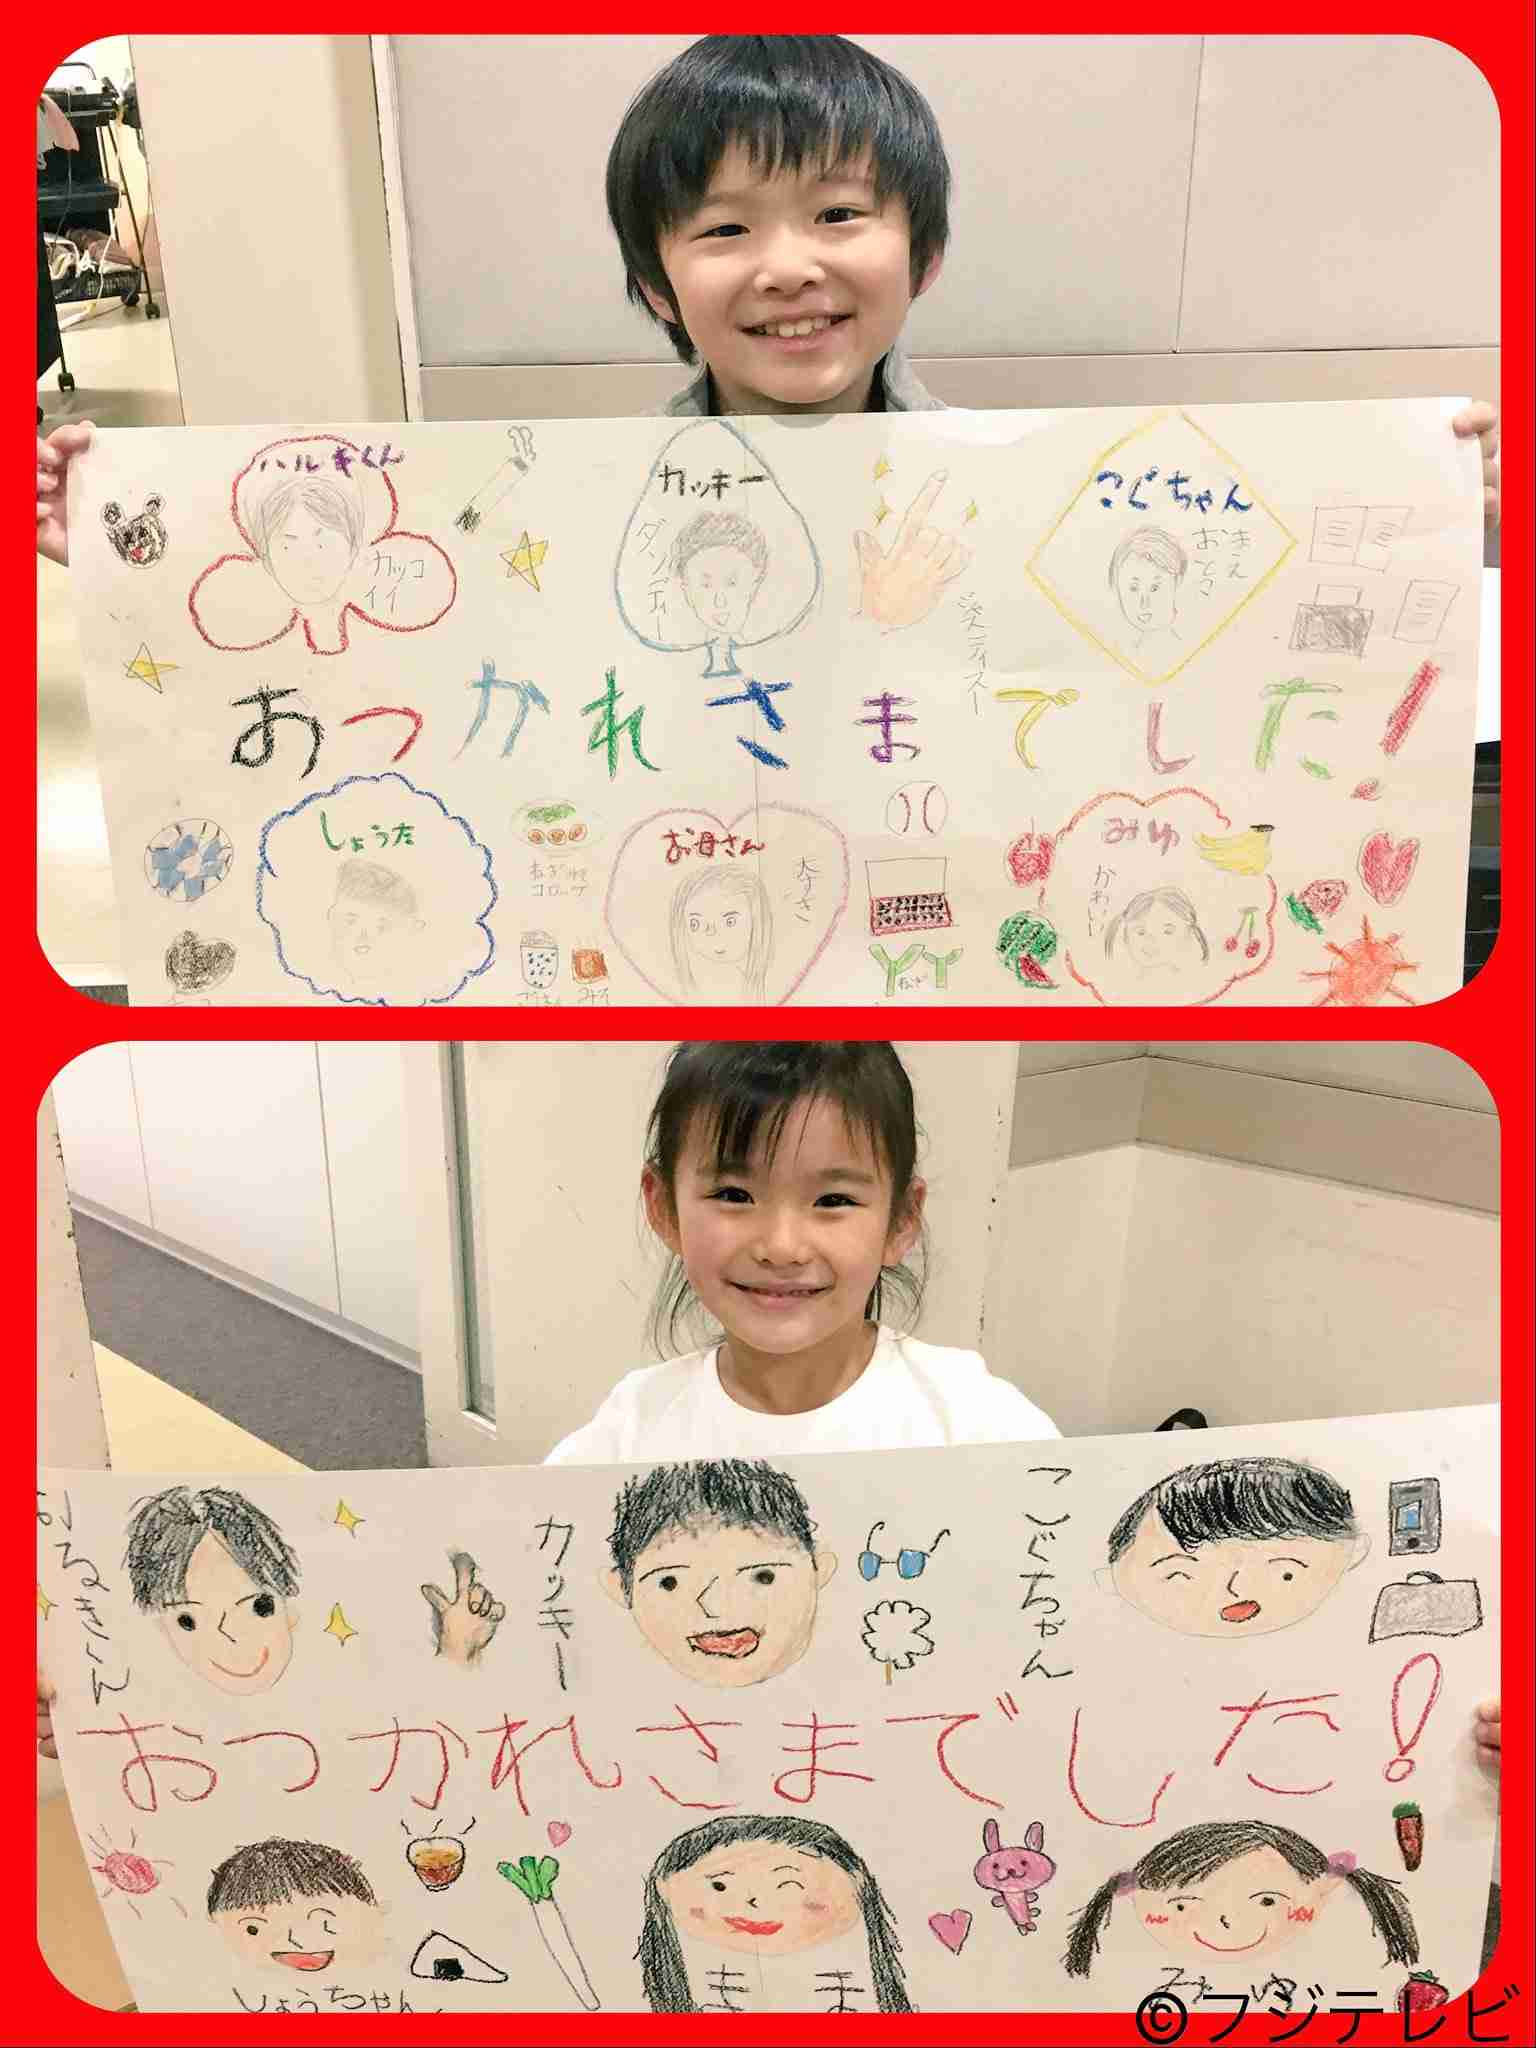 ハルキくん
カッコ
イイ
カッキー
ダンディー
こぐちゃん
おさえ
おとこ
おつかれさまでした!
しょうた
ねぎみそ
コロッケ
お母さん
大すき
みゆ
かわいい
みそ
カッキー
こぐちゃん
おつかれさまでした!
しょうちゃん
まま
みゆ
©フジテレビ